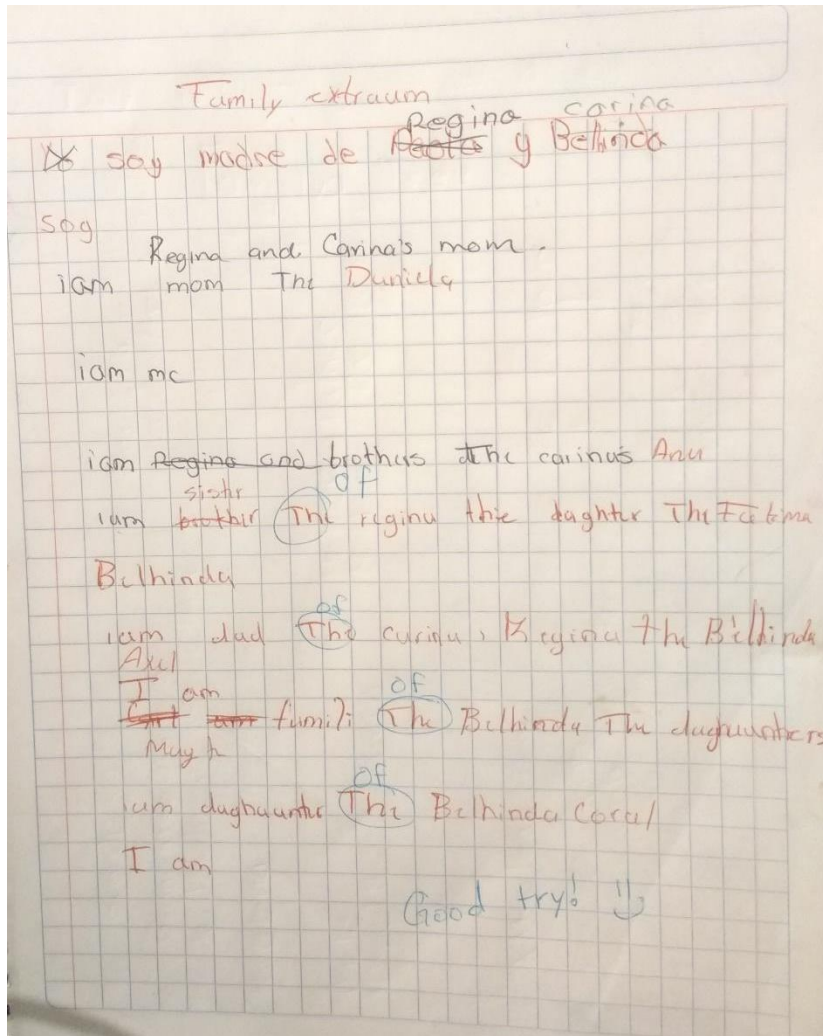 Family extraum
Regina carina
soy madre de y Belinda
soy
Regina and Carina's mom.
iam mom The Daniela
iam me
iam Regina and brothers The carinas Anu
sistr of
iam brothir The regina thie daghter The Fatima
Belhinda
of
iam dad The carina, Regina the Belhinda
Axel
I am of
famili The Belhinda The
May
of
iam The Belhinda Coral
I am
Good try!